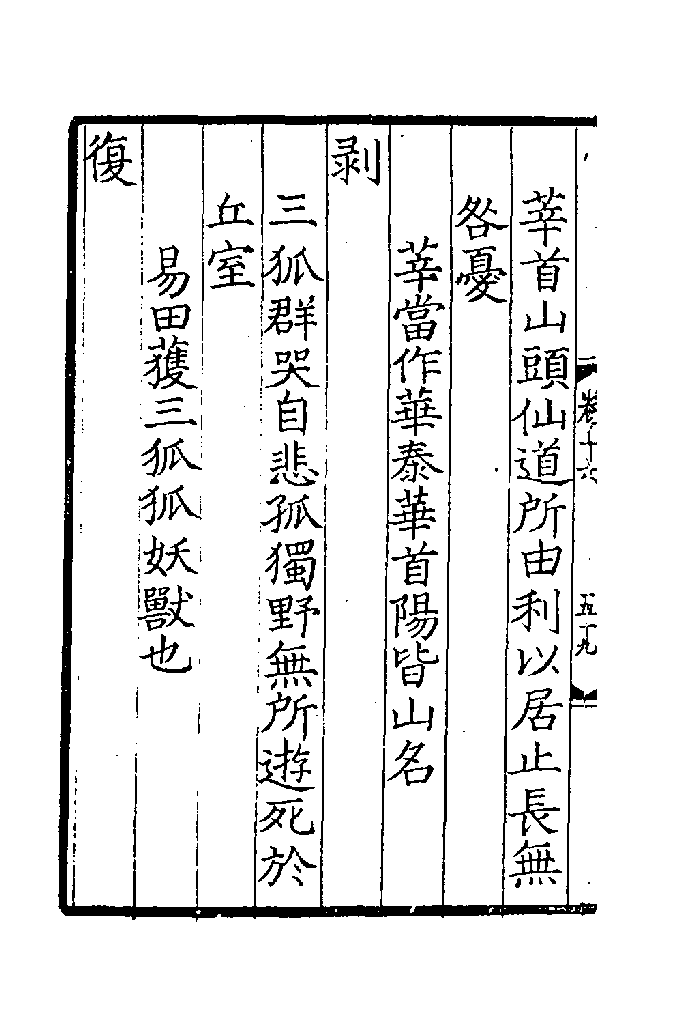 莘首山頭仙道所由利以居止長無
咎憂
莘當作華泰華首陽皆山名
剥
三狐群哭自悲孤獨野無所遊死於
丘室
易田䕶三狐狐妖獸也
復
卷十六
五十九